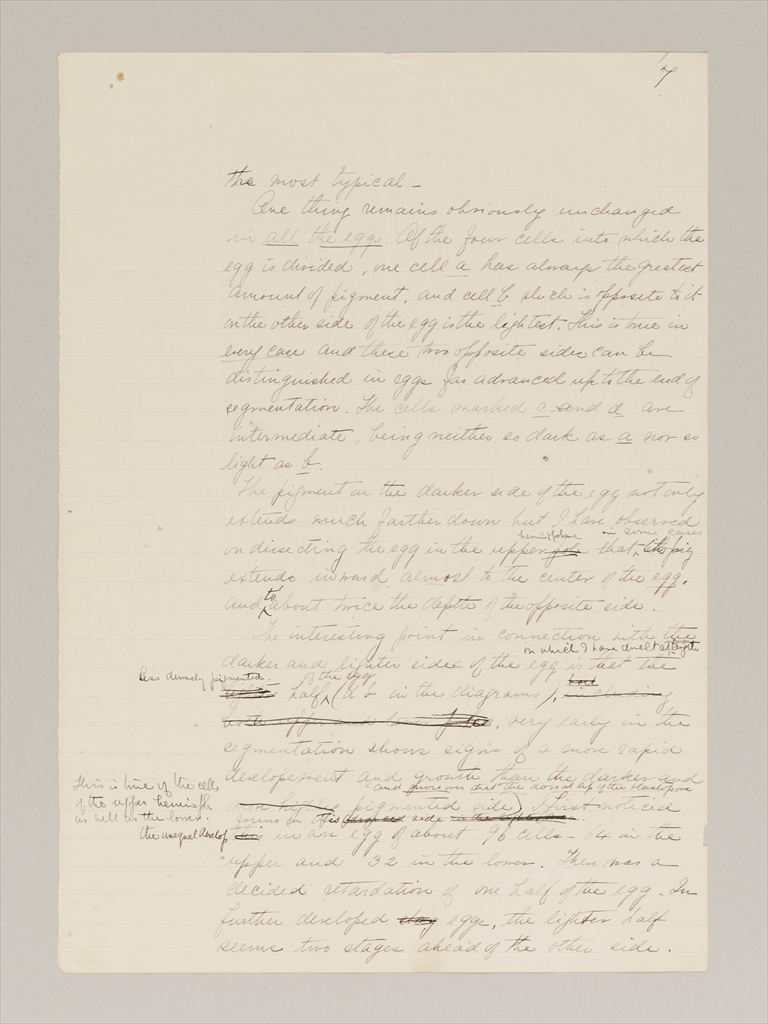 7
the most typical –
One thing remains obviously unchanged
in all the eggs. Of the four cells into which the
egg is divided, one cell a has always the greatest
amount of pigment, and cell b which is opposite to it
on the other side of the egg is the lightest. This is true in
every case and these two opposite sides can be
distinguished in eggs far advanced up to the end of
segmentation. The cells marked c and d are
intermediate, being neither so dark as a nor so
light as b.
The pigment on the darker side of the egg not only
extends much farther down but I have observed
hemisphere in some cases
on dissecting the egg in the upper that, the pig
extends inward almost to the center of the egg,
and to about twice the depth of the opposite side.
The interesting point in connection with the
on which I have dwelt at length
darker and lighter sides of the egg is that the
less densely pigmented of the egg
half (b in the diagrams), including
both upper and lower poles, very early in the
segmentation shows signs of a more rapid
developement and growth than the darker and
and moreover that the dorsal lip of the blastopore
pigmented side) I first noticed
forms on this side
This is true of the cells
of the upper hemisph
as well as the lower.
the unequal develop in an egg of about 96 cells – 64 in the
upper and 32 in the lower. There was a
decided retardation of one half of the egg – In
further developed eggs, the lighter half
seems two stages ahead of the other side.